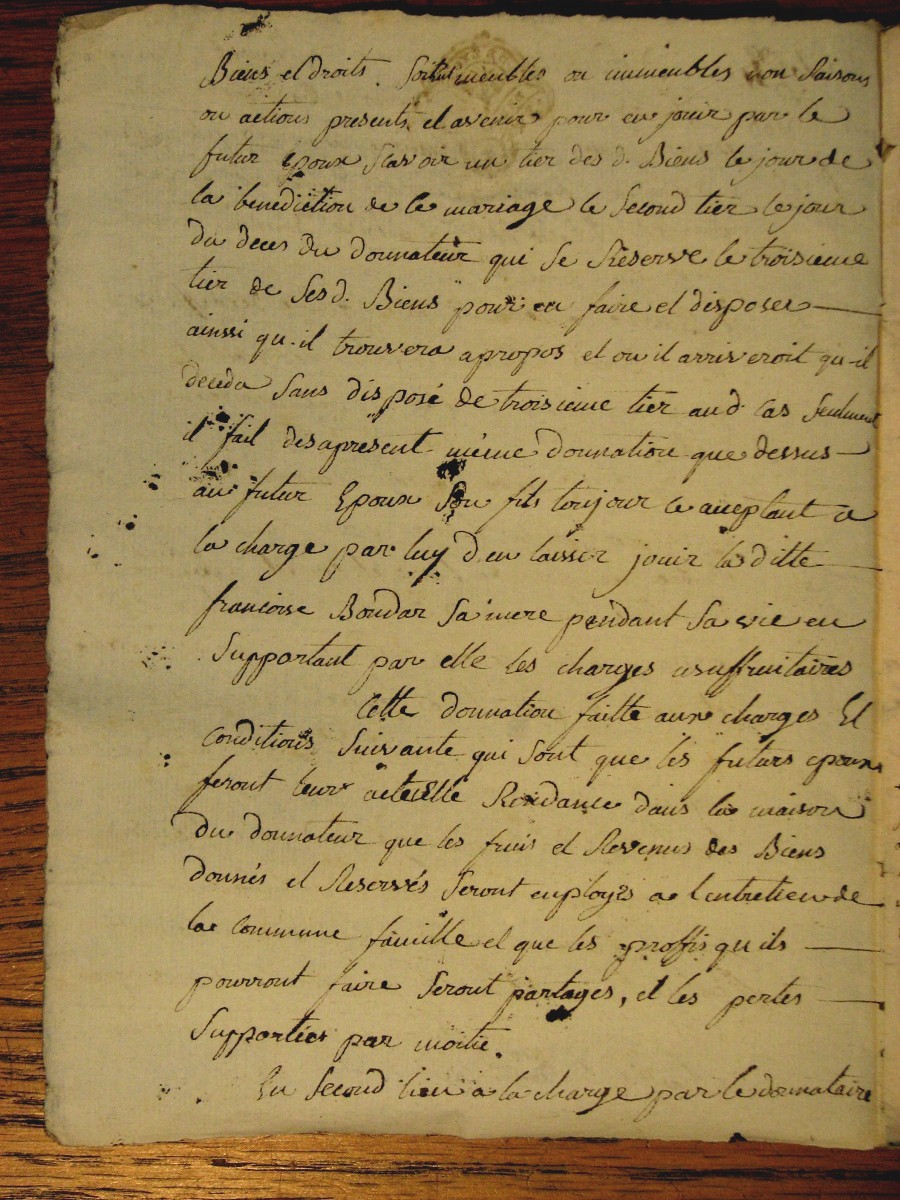 Biens et droits. Soit meubles ou immeubles nom Raisons
ou actions presents et avenir pour en jouir par le
futur epoux Scavoir un tier des d. Biens le jour de
la benediction de ce mariage le Second tier le jour
du deces du donnateur qui Se Reserve le troisieme
tier de Ses d. Biens pour en faire et disposer
ainssi qu-il trouvera apropos et ou il arriveroit qu-il
deceda Sans disposé de troisieme tier aud. Cas Seulment
il fait desapresent même donnation que dessus
au futur Epoux Son fils toujour ce acceptant a
la charge par luy d'en laisser jouir la ditte
francoise Boudar Sa mere pendant Sa vie en
Supportant par elle les charges usuffruitaires
Cette donnation faitte aux charges Et
Conditions Suivante qui Sont que les futurs epoux
feront leur actuelle Residance dans la maison
du donnateur que les fruis et Revenus des Biens
donnés et Reservés Seront employés a l'entretien de
la Commune famille et que les proffis qu ils
pourront faire Seront partages, et les pertes
Supportées par moitie.
En Second lieu a la charge par le donnataire